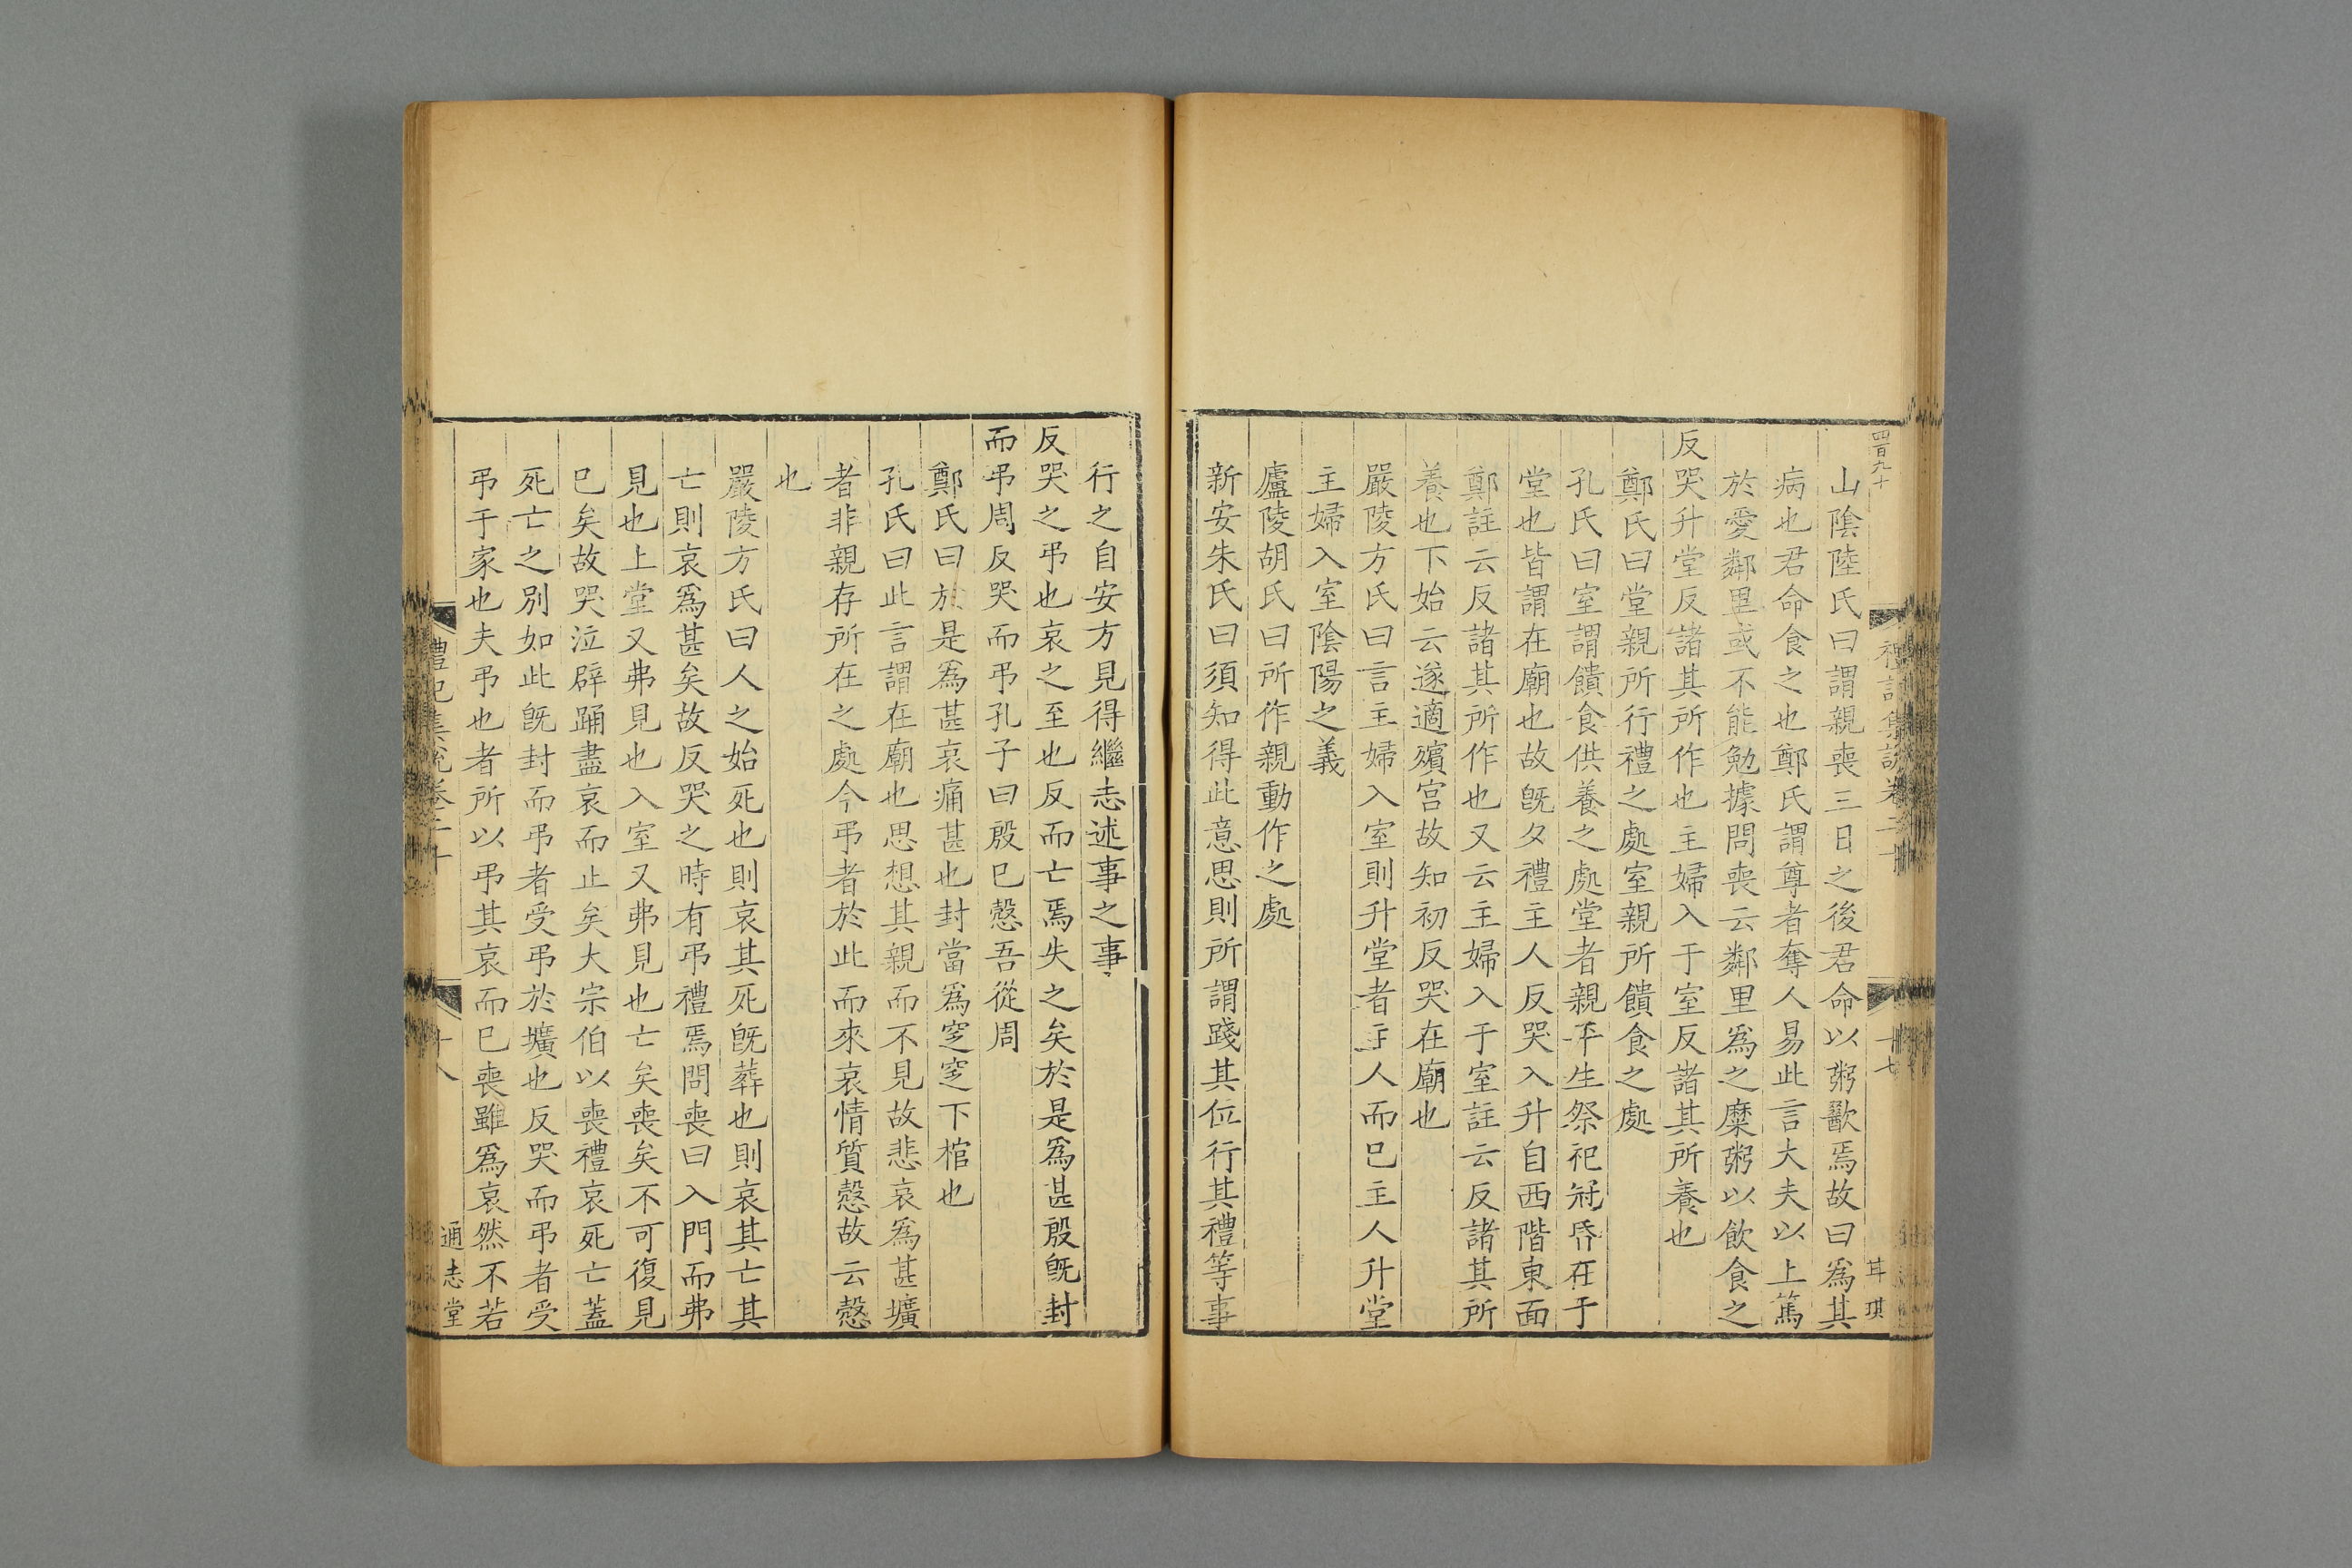 四百九十
禮記集說卷二十
十七
耳琪
山陰陸氏曰謂親喪三日之後君命以粥歠焉故曰爲其
病也君命食之也鄭氏謂尊者奪人易此言大夫以上篤
於愛鄰里或不能勉據問喪云鄰里爲之糜粥以飲食之
反哭升堂反諸其所作也主婦入于室反諸其所養也
鄭氏曰堂親所行禮之處室親所饋食之處
孔氏曰室謂饋食供養之處堂者親平生祭祀冠昏在于
堂也皆謂在廟也故旣夕禮主人反哭入升自西階東面
鄭註云反諸其所作也又云主婦入于室註云反諸其所
養也下始云遂適殯宫故知初反哭在廟也
嚴陵方氏曰言主婦入室則升堂者主人而已主人升堂
主婦入室陰陽之義
廬陵胡氏曰所作親動作之處
新安朱氏曰須知得此意思則所謂踐其位行其禮等事
行之自安方見得繼志述事之事
反哭之弔也哀之至也反而亡焉失之矣於是爲甚殷旣封
而弔周反哭而弔孔子曰殷已慤吾從周
鄭氏曰於是爲甚哀痛甚也封當爲窆窆下棺也
孔氏曰此言謂在廟也思想其親而不見故悲哀爲甚壙
者非親存所在之處今弔者於此而來哀情質慤故云慤
也
嚴陵方氏曰人之始死也則哀其死旣葬也則哀其亡其
亡則哀爲甚矣故反哭之時有弔禮焉問喪曰入門而弗
見也上堂又弗見也入室又弗見也亡矣喪矣不可復見
已矣故哭泣辟踊盡哀而止矣大宗伯以喪禮哀死亡蓋
死亡之別如此旣封而弔者受弔於壙也反哭而弔者受
弔于家也夫弔也者所以弔其哀而已喪雖爲哀然不若
禮記集說卷二十
十八
通志堂